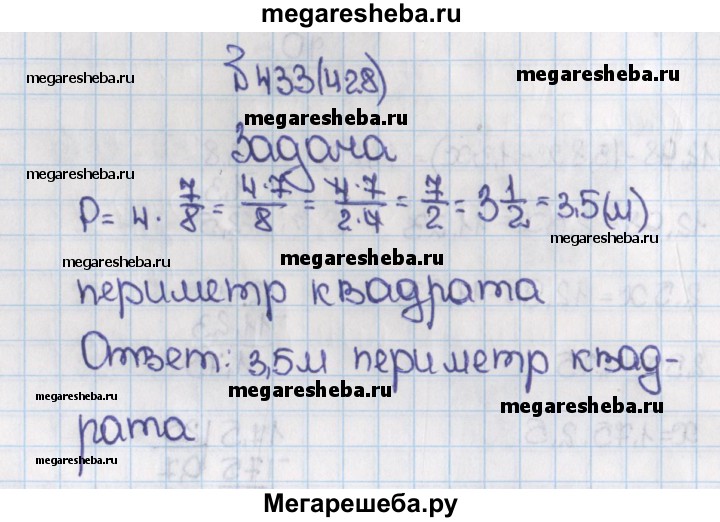 megaresheba.ru
megaresheba.ru
megaresheba.ru
433(428)
megaresheba.ru
Задача
megaresheba.ru
P = 4 · 7/8 = 4·7/8 = 4·7/2·4 = 7/2 = 3 1/2 = 3,5 (м)
megaresheba.ru
megaresheba.ru
megaresheba.ru
периметр квадрата
Ответ: 3,5 м периметр квад-
megaresheba.ru
megaresheba.ru
megaresheba.ru
рата
megaresheba.ru
Мегарешеба.ру